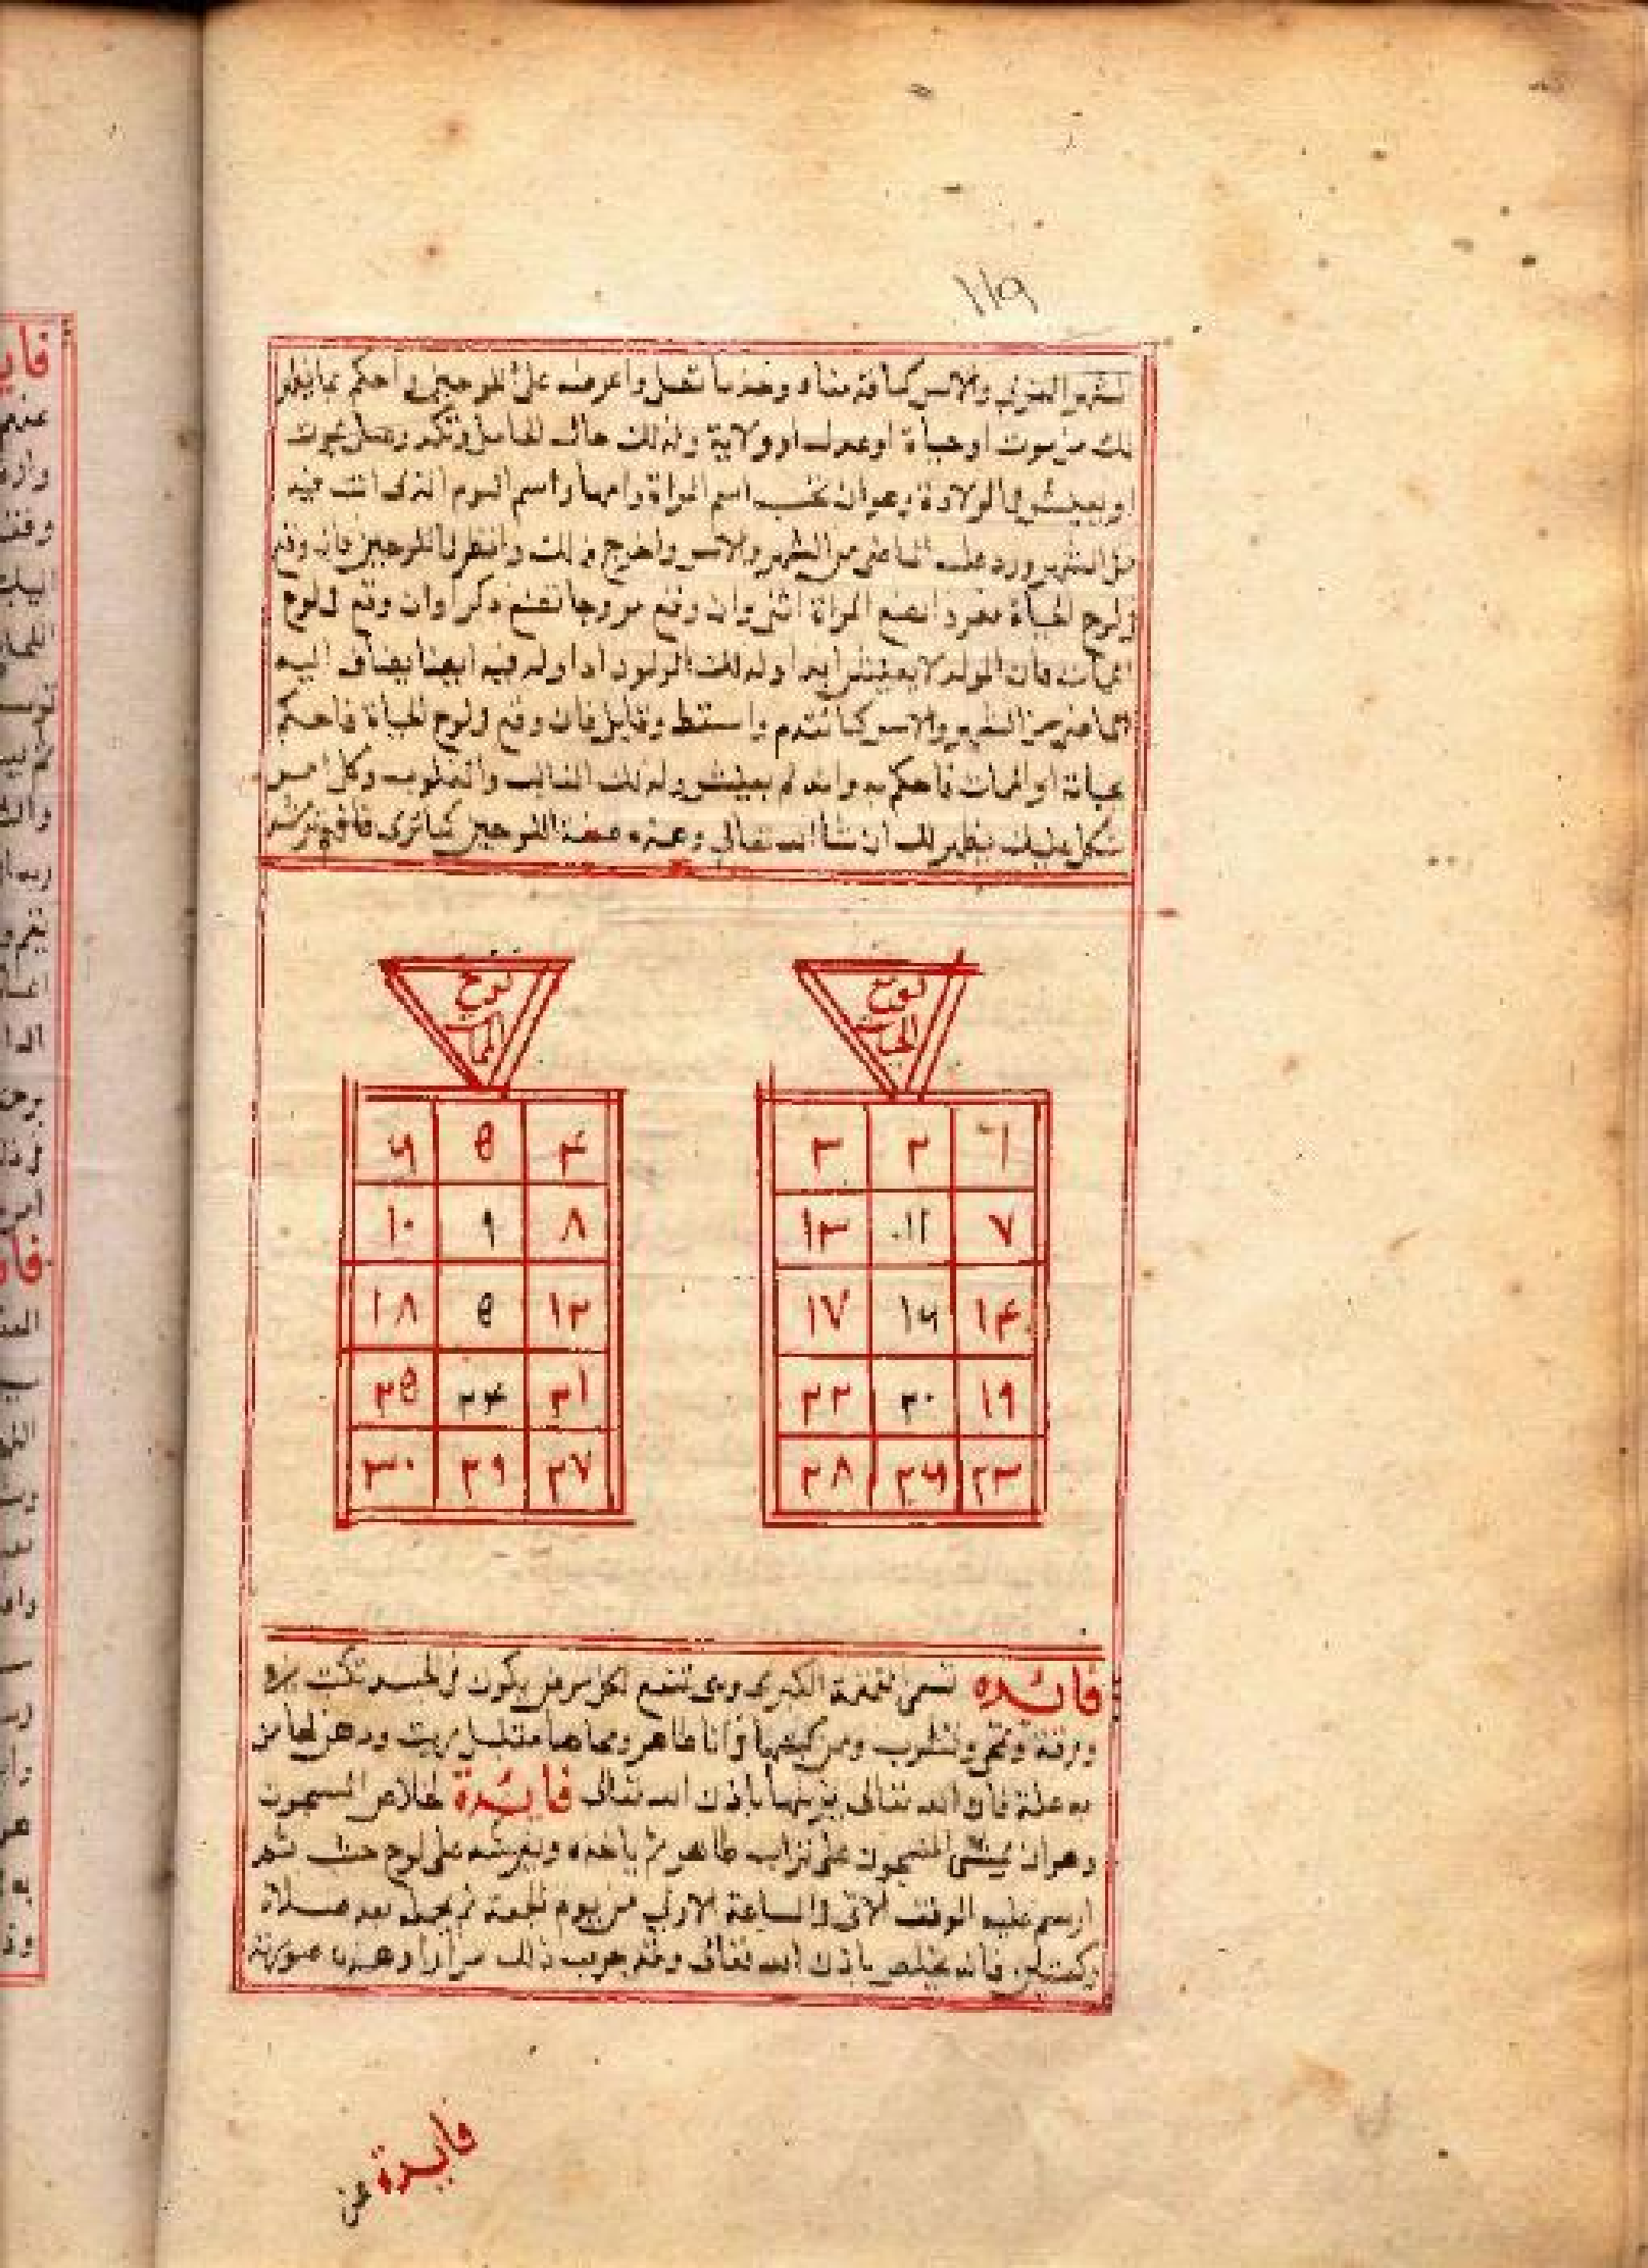 ١١٩
الشهر العربي والاس كما قدمناه وخذ ما تفضل واعرضه على اللوحين واحكم بما يظهر
لك من موت او حياة او عزل او ولاية وكذلك حال الحامل وتلد وهل يموت
او يعيش في الولادة وهو ان تحسب اسم المراة وامها واسم اليوم الذي انت فيه
من الشهر وزد عليه الماضي من الشهر والاس واخرج ذلك وانظر في اللوحين فان وقع
في لوح الحياة مفردا تضع المراة انثى وان وقع مزوجا تضع ذكرا وان وقع في لوح
الممات فان المولد لا يعيش ابدا وكذلك المولود اذا ولد فيه ايضا يضاف اليه
الماضي من الشهر والاس كما تقدم واسقط وقابل فان وقع في لوح الحياة فاحكم
بحياته او الممات فاحكم به وانه لم يعيش وكذلك الغالب والمغلوب وكل امر
شكل عليك يظهر لك ان شا الله تعالى وهذه صفة اللوحين كما ترى فافهم ترشد
لوح الحيات
١ ٢ ٣
٧ ١١ ١٣
١٤ ١٦ ١٧
١٩ ٢٠ ٢٢
٢٣ ٢٦ ٢٨
لوح الممات
٤ ٥ ٦
٨ ٩ ١٠
١٢ ٥ ١٨
٢١ ٢٤ ٢٥
٢٧ ٢٩ ٣٠
فائده تسمى الكبرى وهي تنفع لكل مرض يكون في الجسد تكتب
ورقة وتمحى وتشرب ومن كتبها في انا طاهر ومحاها بقليل زيت ودهن بها من
به علة فان الله تعالى يزيلها باذن الله تعالى فايدة لخلاص المسجون
وهو ان يمشي المسجون على تراب طاهر ثم ياخذه ويفرشه على لوح خشب ثم
ارسم عليه الوفق الاتي في الساعة الاولى من يوم الجمعة ثم يحمله بعد صلاة
ركعتين فانه يخلص باذن الله تعالى وقد جرب ذلك مرارا وهذه صورته
فايدة
عن